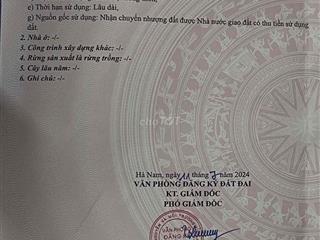 e) Thời hạn sử dụng: Lâu dài,
g) Nguồn gốc sử dụng: Nhận chuyển nhượng đất được Nhà nước giao đất có thu tiền sử dụng
đất.
2. Nhà ở: -/-
3. Công trình xây dựng khác: -/-
4. Rừng sản xuất là rừng trồng: -/-
5. Cây lâu năm: -/-
6. Ghi chú: -/-
chợTỐT
Hà Nam, ngày 11 tháng 7 năm 2024
VĂN PHÒNG ĐĂNG KÝ ĐẤT ĐAI
KT. GIÁM ĐỐC
PHÓ GIÁM ĐỐC
VĂN PHÒNG
ĐĂNG KÝ